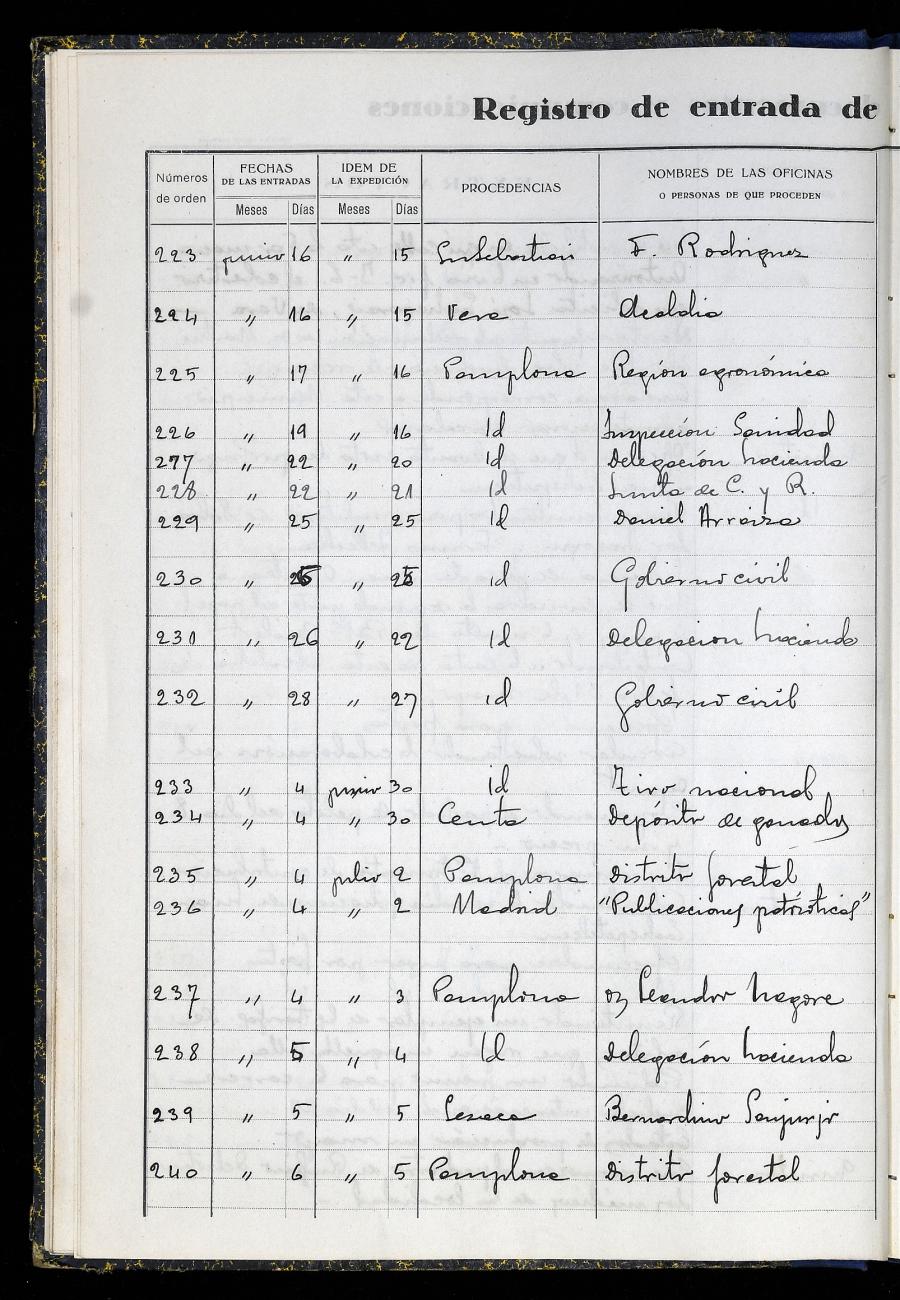 Registro de entrada de
Números de orden
FECHAS DE LAS ENTRADAS
IDEM DE LA EXPEDICIÓN
PROCEDENCIAS
NOMBRES DE LAS OFICINAS O PERSONAS DE QUE PROCEDEN
Meses Días Meses Días
223 junio 16 " 15 Sn Sebastian F. Rodriguez
224 " 16 " 15 Vera Alcaldia
225 " 17 " 16 Pamplona Región agronómica
226 " 19 " 16 Id Inspeccion Sanidad
277 " 22 " 20 Id Delegación hacienda
228 " 22 " 21 Id Junta de C. y R.
229 " 25 " 25 Id Daniel Arraiza
230 " 26 " 25 id Gobierno civil
231 " 26 " 22 Id Delegacion hacienda
232 " 28 " 27 id Gobierno civil
233 " 4 junio 30 id Tiro nacional
234 " 4 " 30 Ceuta Depósito de ganados
235 " 4 julio 2 Pamplona Distrito forestal
236 " 4 " 2 Madrid "Publicaciones patrióticas"
237 " 4 " 3 Pamplona Leandro Nagore
238 " 5 " 4 Id Delegación hacienda
239 " 5 " 5 Lesaca Bernardino Sanjurjo
240 " 6 " 5 Pamplona Distrito forestal